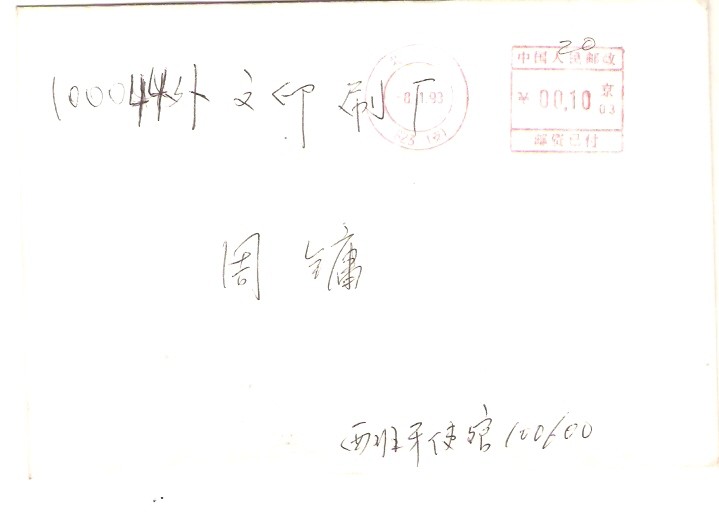 20
中国人民邮政
100044外文印刷厂
8.1.93
¥ 00.10 京
03
邮资已付
周镛
西班牙使馆 100600